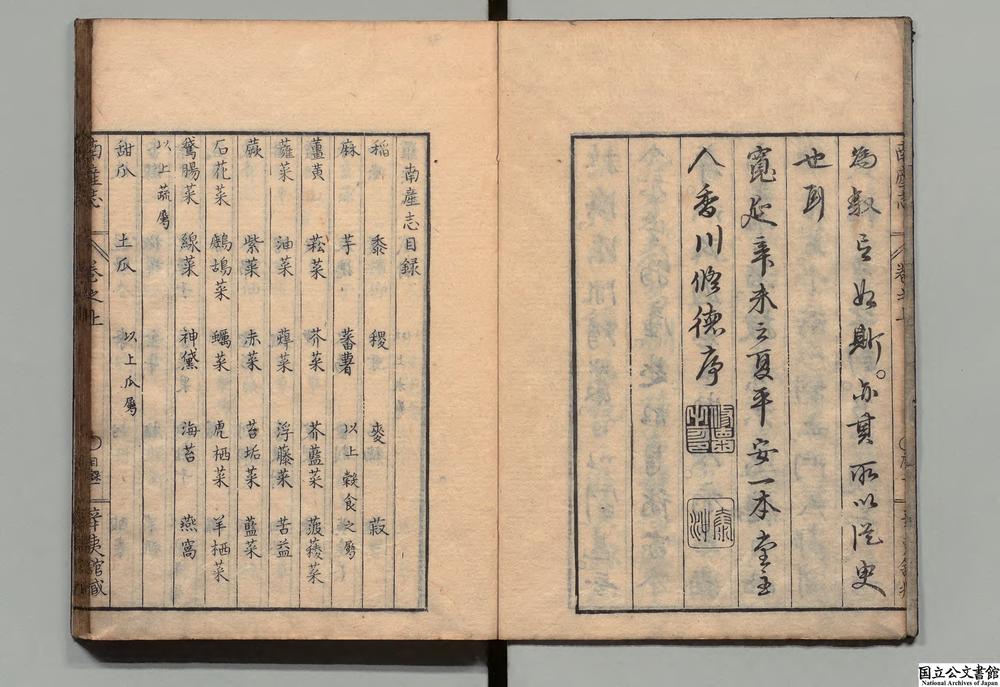 為叙之如斯。亦其所以從史
也耳
寬延辛未之夏平安一本堂主
人香川修德序
南産志目録
稲 黍 稷 麥 菽
麻 芋 蕃薯 以上穀食之屬
薑黄 菘菜 芥菜 芥藍菜 菠薐菜
蕹菜 油菜 蓴菜 浮藤菜 苦益
蕨 紫菜 赤菜 苔垢菜 藍菜
石花菜 鷓鴣菜 蠣菜 虎栖菜 羊栖菜
鵞腸菜 線菜 神黛 海苔 燕窩
以上蔬屬
甜瓜 土瓜 以上瓜屬
南産志 卷之上 目録 辛夷館藏
国立公文書館
National Archives of Japan